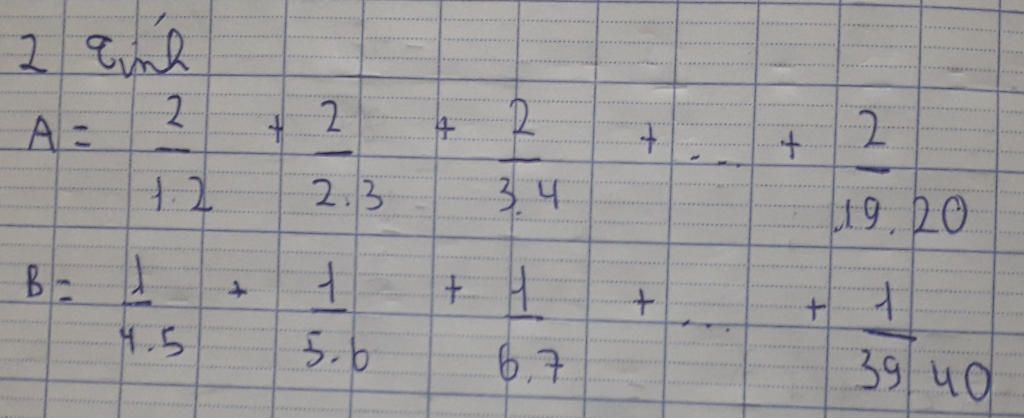 2 Tính
A = 2/1.2 + 2/2.3 + 2/3.4 + ... + 2/19.20
B = 1/4.5 + 1/5.6 + 1/6.7 + ... + 1/39.40